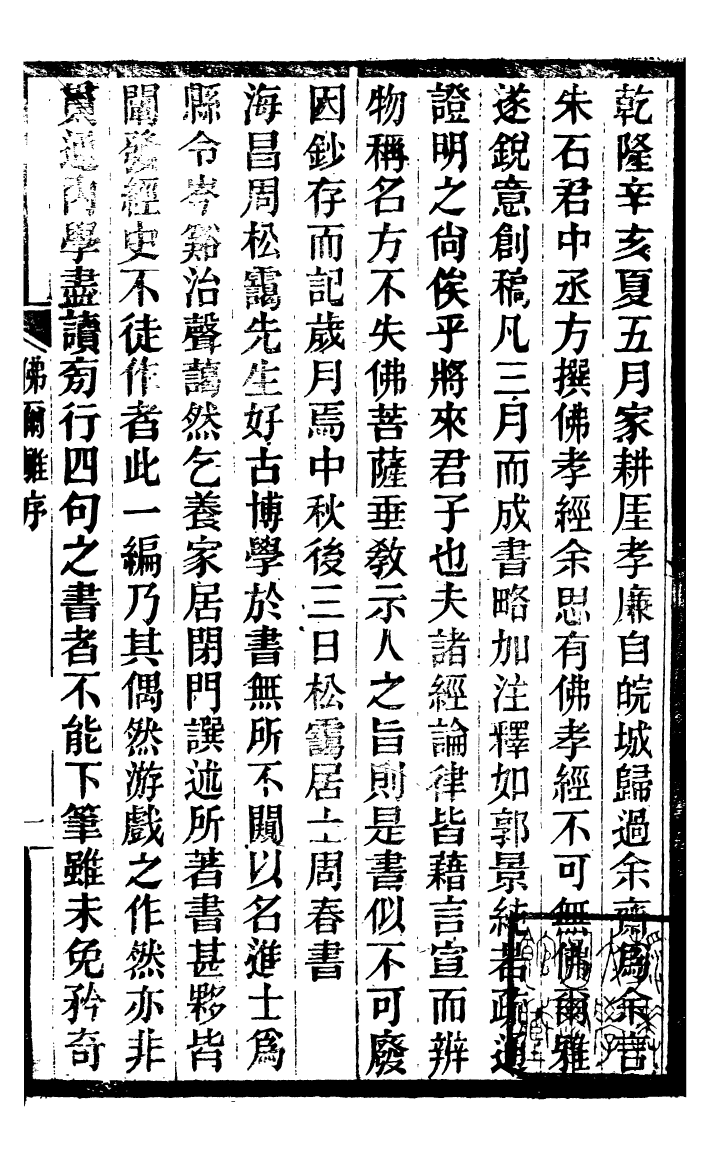 乾隆辛亥夏五月家耕厓孝廉自皖城歸過余齋爲余言
朱石君中丞方撰佛孝經余思有佛孝經不可無佛爾雅
遂銳意創稿凡三月而成書略加注釋如郭景純者疏通
證明之尙俟乎將來君子也夫諸經論律皆藉言宣而辨
物稱名方不失佛菩薩垂敎示人之旨則是書似不可廢
因鈔存而記歲月焉中秋後三日松靄居士周春書
海昌周松靄先生好古博學於書無所不闚以名進士爲
縣令岑谿治聲藹然乞養家居閉門譔述所著書甚夥皆
闡發經史不徒作者此一編乃其偶然游戲之作然亦非
貫通內學盡讀旁行四句之書者不能下筆雖未免矜奇
佛爾雅序
一